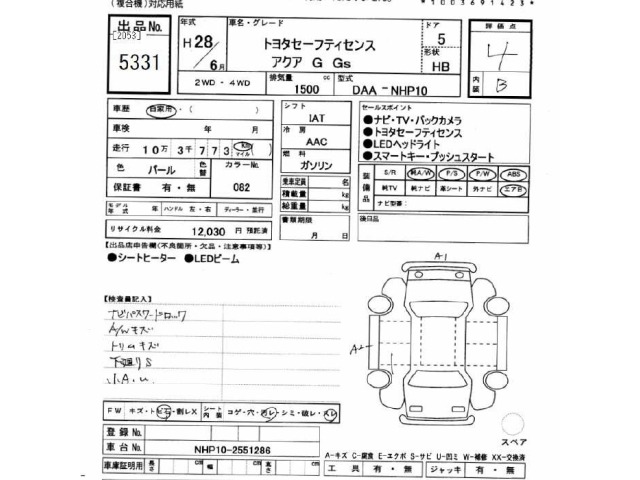 (複合機)対応用紙
*1003691423*
出品No.
[2053]
5331
年式
H28/6月
車名・グレード
トヨタセーフティセンス
アクア G Gs
ドア
5
形状
HB
評価点
4
内装
B
2WD ・ 4WD
排気量 cc
1500
型式
DAA－NHP10
車歴
自家用・(　)
車検 年 月
走行 10万3千773 Km マイル
色
パール
色替
カラーNo.
082
保証書 有・無
シフト
IAT
冷房
AAC
燃料
ガソリン
セールスポイント
●ナビ・TV・バックカメラ
●トヨタセーフティセンス
●LEDヘッドライト
●スマートキー・プッシュスタート
装備品
S/R 純A/W P/S P/W ABS
純TV 純ナビ 革シート 外ナビ エアB
ナビ型番:
乗車定員 名
積載量 kg
総重量 kg
モデル年式 年 ハンドル 左・右 ディーラー・並行
リサイクル料金 12,030 円 預託済
書類期限
月 日
後日品
【出品店申告欄(不良箇所・欠品・注意事項等)】
●シートヒーター ●LEDビーム
【検査員記入】
ナビパスワードロック
A/Wキズ
トリムキズ
下廻りS
A1
FW キズ・トビ石・割レX
シート内装 コゲ・穴・汚レ・シミ・破レ・スレ
スペア
登録No.
車台No. NHP10-2551286
A-キズ C-腐食 E-エクボ S-サビ U-凹ミ W-補修 XX-交換済
車庫証明用 長さ cm 幅 cm 高さ cm
工具 有・無 ジャッキ 有・無